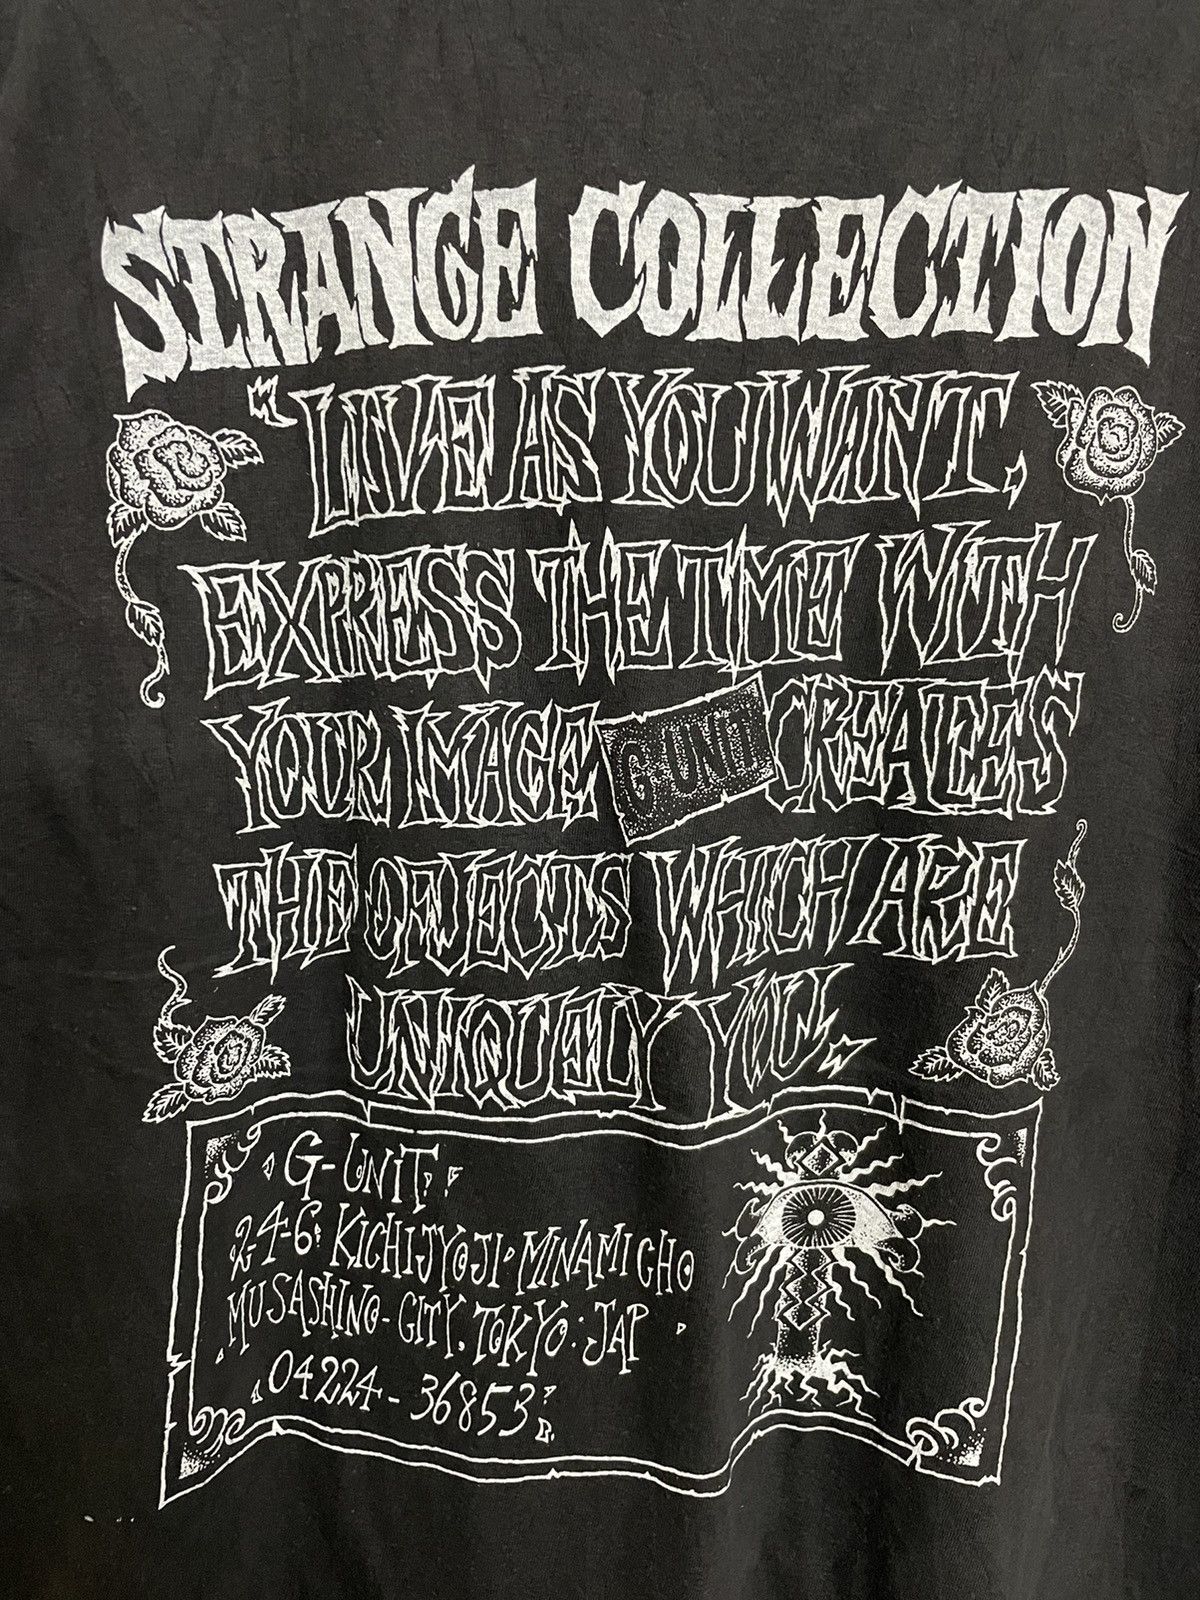 STRANGE COLLECTION
"LIVE AS YOU WANT.
EXPRESS THE TIME WITH
YOUR IMAGE G-UNIT CREATES
THE OFJECTS WHICH ARE
UNIQUELY YOU."
G-UNIT
2-4-6 KICHIJYOJI-MINAMICHO
MUSASHINO-CITY. TOKYO. JAP
04224-36853